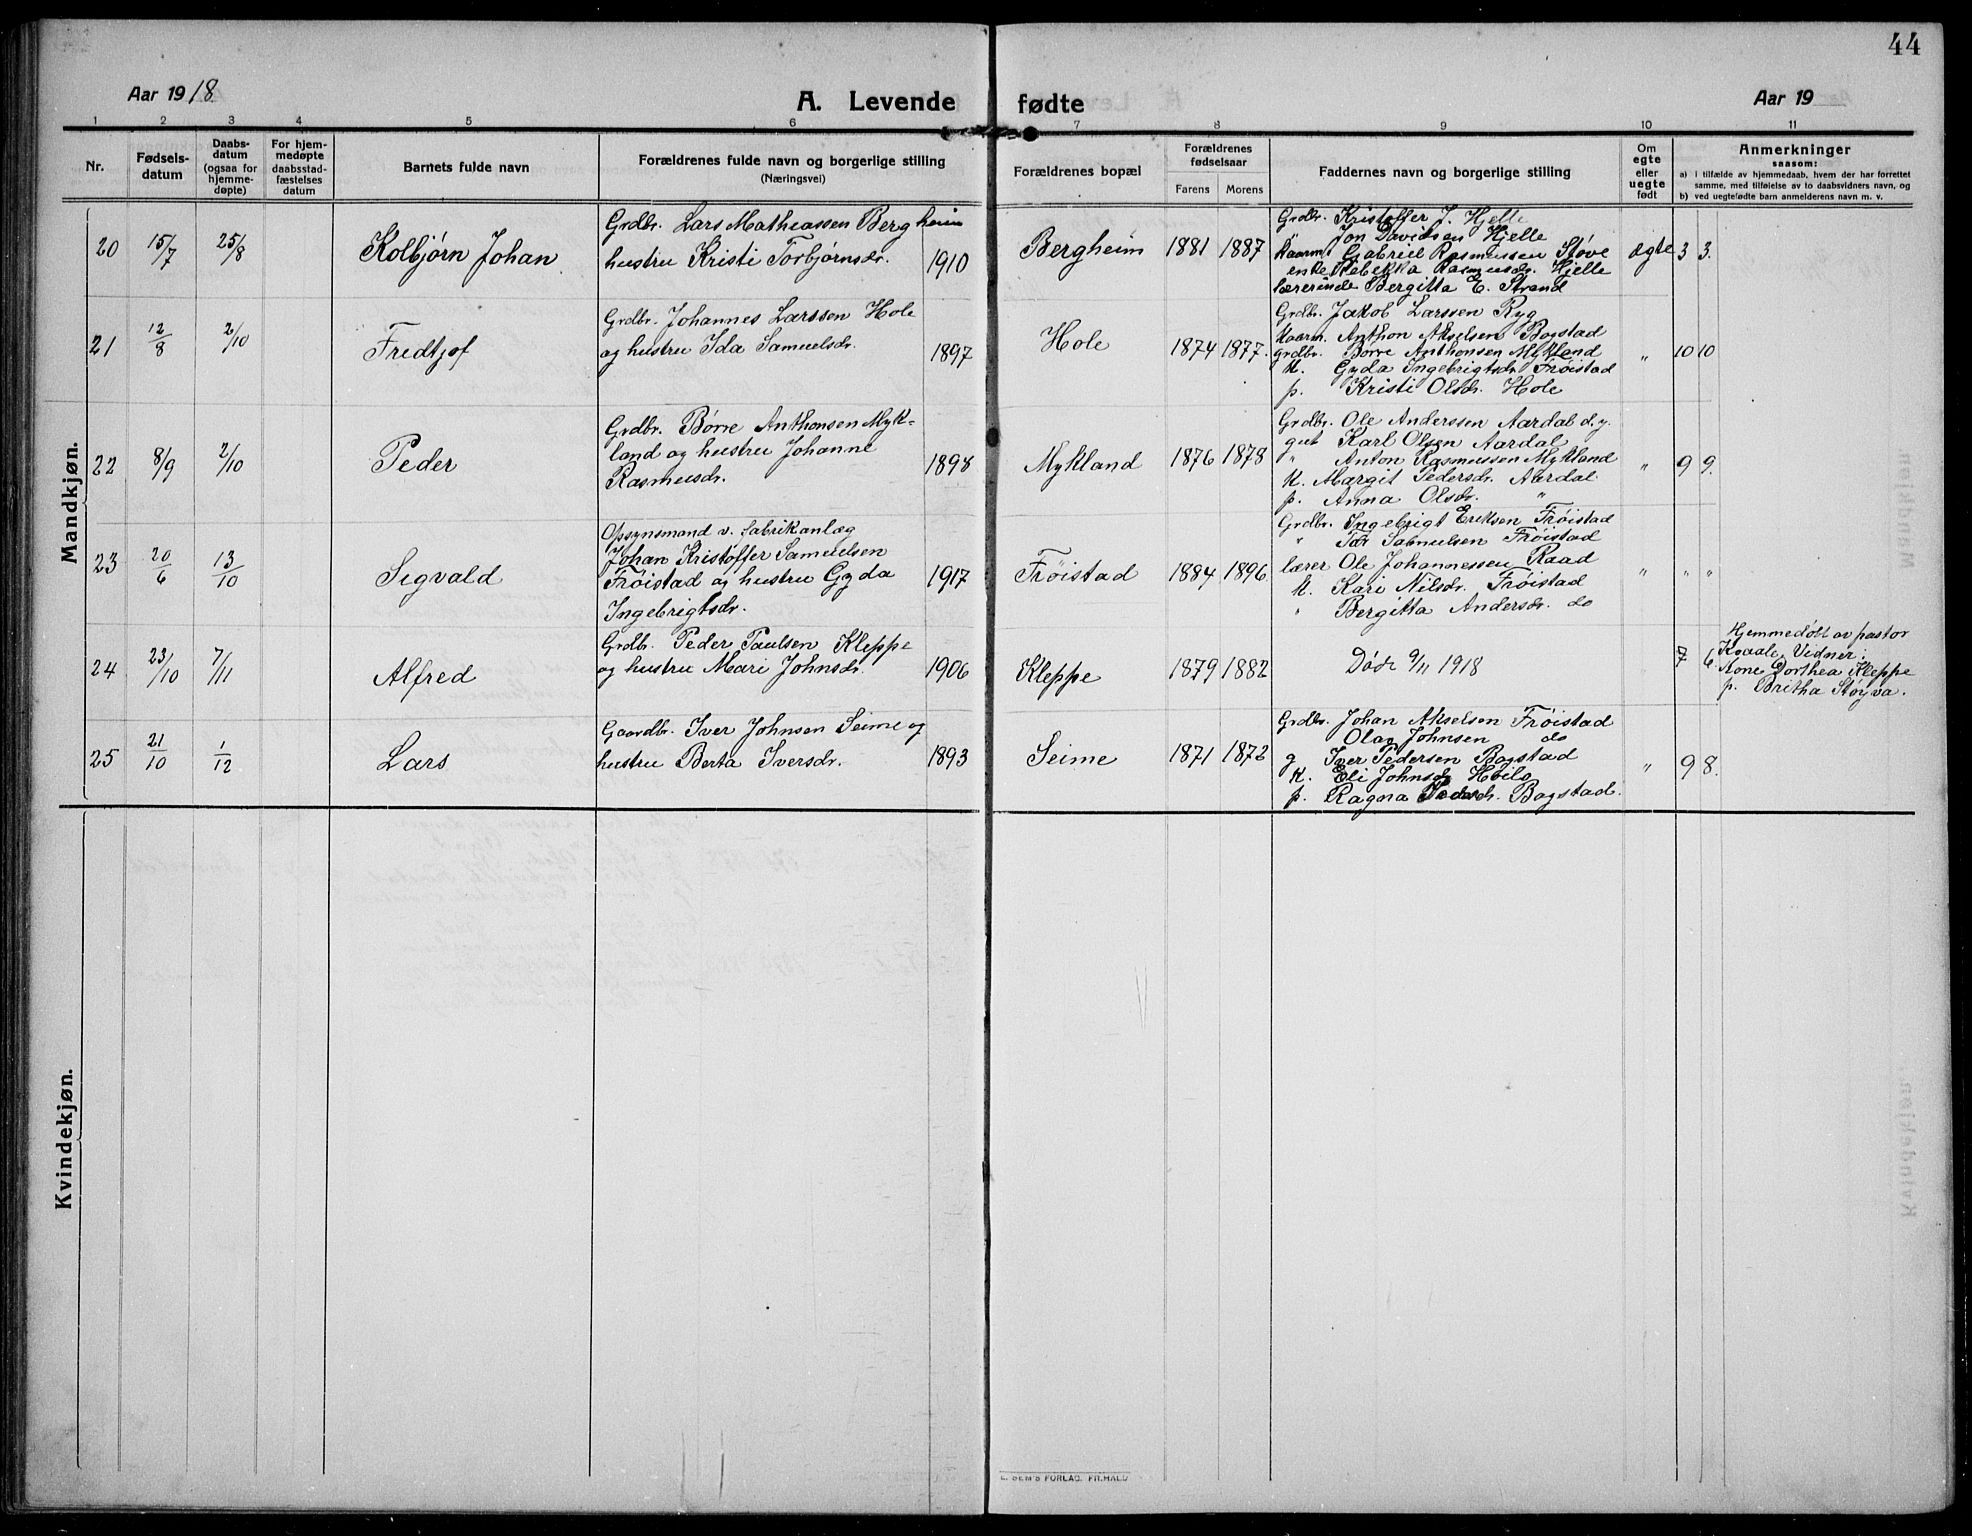 44
Aar 1918
A. Levende fødte
Aar 19
1 2 3 4 5 6 7 8 9 10 11
Nr.
Fødselsdatum
Daabsdatum (ogsaa for hjemmedøpte)
For hjemmedøpte daabsstadfæstelses datum
Barnets fulde navn
Forældrenes fulde navn og borgerlige stilling
(Næringsvei)
Forældrenes bopæl
Forældrenes fødselsaar
Farens Morens
Faddernes navn og borgerlige stilling
Om egte eller uegte født
Anmerkninger
saasom:
a) i tilfælde av hjemmedaab, hvem der har forrettet
samme, med tilføielse av to daabsvidners navn, og
b) ved uegtefødte barn anmelderens navn m. v.
Mandkjøn.
20 15/7 25/8 Kolbjørn Johan
Grdbr. Lars Mathiassen Bergheim
hustru Kristi Torbjørnsdr. 1910
Bergheim 1881 1887
Grdbr. Kristoffer J. Hjelle
Jon Davidsen Hjelle
Kaarm. Gabriel Rasmussen Støve
enke Rebekka Rasmusdr. Hjelle
lærerinde Bergitta E. Strand
ægte 3 3.
21 12/8 2/10 Fredtjof
Grdbr. Johannes Larssen Hole
og hustru Ida Samuelsdr. 1897
Hole 1874 1877.
Grdbr. Jakob Larssen Ryg
Kaarm. Anthon Akselsen Bogstad
grdbr. Børre Anthonsen Mykland
K. Gyda Ingebrigtsdr. Frøistad
p. Kristi Olsdr. Hole
" 10 10
22 8/9 2/10 Peder
Grdbr. Børre Anthonsen Myk-
land og hustru Johanne
Rasmusdr. 1898
Mykland 1876 1878
Grdbr. Ole Anderssen Aardal d.y.
gut Karl Olsen Aardal
" Anton Rasmussen Mykland
K. Margit Pedersdr. Aardal
p. Anna Olsdr. "
" 9 9.
23 20/6 13/10 Sigvald
Opsynsmand v. fabrikanlæg
Johan Kristoffer Samuelsen
Frøistad og hustru Gyda 1917
Ingebrigtsdr.
Frøistad 1884 1896.
Grdbr. Ingebrigt Eriksen Frøistad
" Samuelsen Frøistad
lærer Ole Johannessen Raad
K. Kari Nilsdr. Frøistad
" Bergitta Andersdr. do
" " "
24 23/10 7/11 Alfred
Grdb. Peder Paulsen Kleppe
og hustru Mari Johnsdr. 1906
Kleppe 1879 1882
Død 9/11 1918
7 6
Hjemmedøbt av pastor
Kvaale. Vidner:
Ane Dorthea Kleppe
p. Britha Støyva.
25 21/10 1/12 Lars
Gaardbr. Iver Johnsen Seime og
hustru Berta Iversdr. 1893
Seime 1871 1872
Grdbr. Johan Akselsen Frøistad
Olav Johnsen do
g Iver Pedersen Bogstad
K. Eli Johnsdr
p. Ragna Bogstad.
" 9 8.
Kvindekjøn.
E. SEM'S FORLAG, FR.HALD